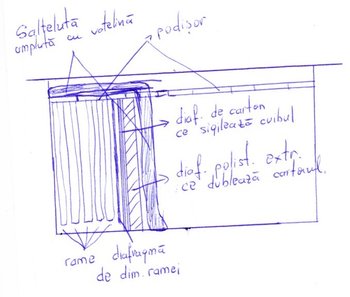 Salteluță
umplută cu vatelină
podișor
diaf. de carton
ce sigilează cuibul
diaf. polist. extr.
ce dublează cartonul.
rame
diafragmă
de dim. ramei